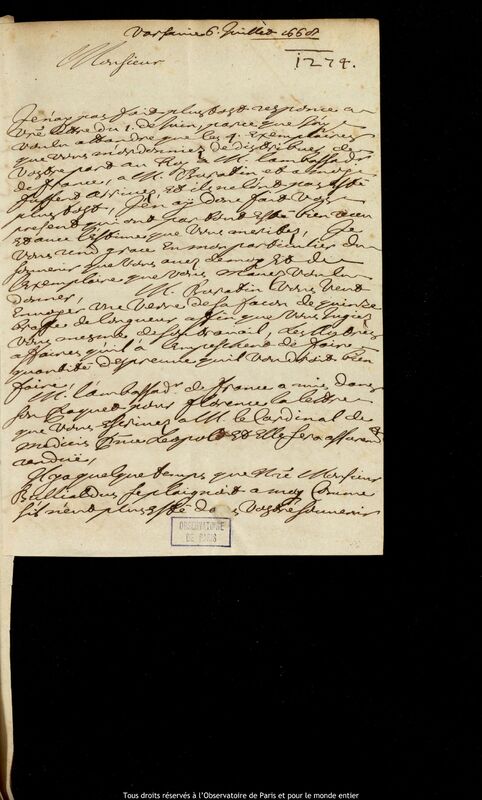 Varsavie 6. Juillet 1668
1274.
Monsieur
Je n'ay pas fait plustost response a
vre lettre du 1. de Juin, parce que j'ay
voulu attendre que les 4. exemplaires
que vous m'ordonniez de distribuer de
vostre part au Roy a M. l'ambassadr
de france, a M. Buratin, et a moy
fussent arrivez, et ils ne l'ont pas esté
plus tost, J'en ay donc fait vos
presents qui ont par tout esté bien receu
et avec l'estime que vous meritez, Je
vous rend grace en mon particulier du
souvenir que vous avez de moy et de
l'exemplaire que vous m'avez voulu
donner, M. Buratin vous veut
envoyer un verre de sa facon de quinze
brasses de longueur affin que vous jugiez
vous mesme de son travail, les
affaires qu'il a l'empeschent de faire
quantité d'espreuves qu'il voudroit bien
faire,
M. l'ambassadr de france a mis dans
son pacquet pour florence la lettre
que vous escrivez a M. le Cardinal de
medicis Prince Leopold et elle sera assurement
rendüe,
Il y a quelque temps que Nre Monsieur
Bullialdus se plaignoit a moy comme
s'il n'eut plus esté dans vostre souvenir
OBSERVATOIRE
DE PARIS
Tous droits réservés à l'Observatoire de Paris et pour le monde entier